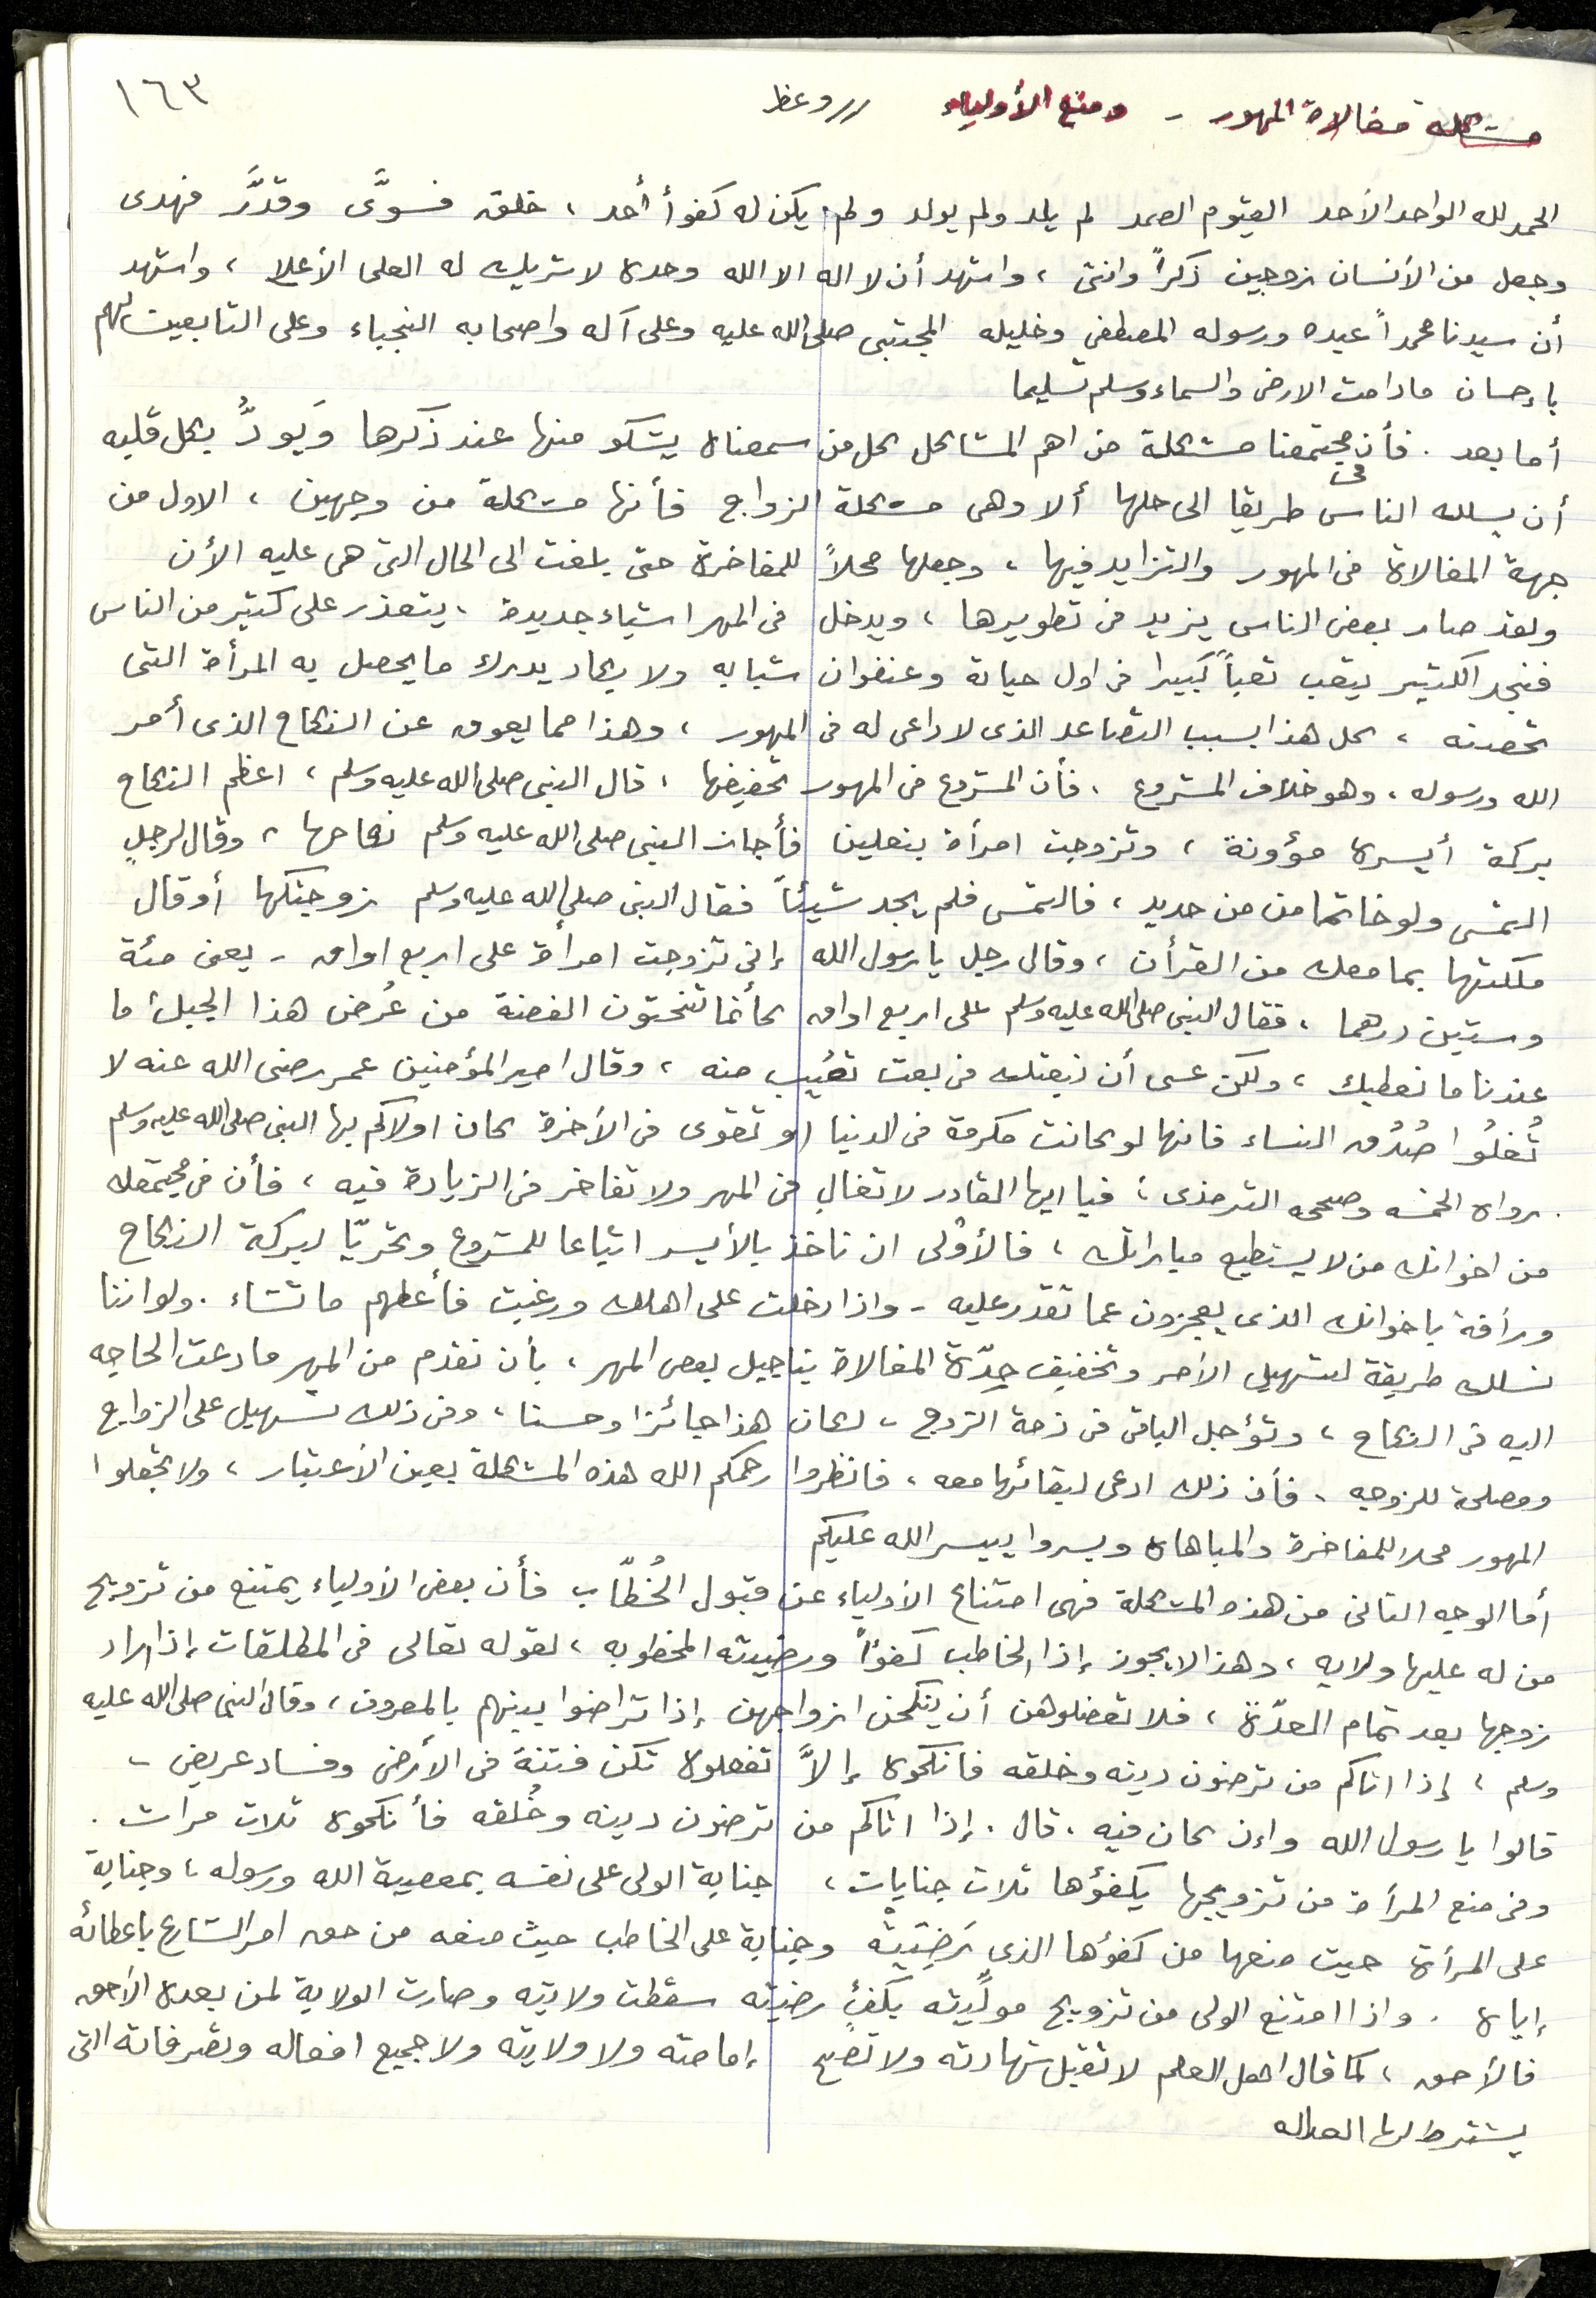 ١٦٣
مشكلة مغالاة المهور - ومنع الأولياء // وعظ
الحمد لله الواحد الأحد القيوم الصمد لم يلد ولم يولد ولم يكن له كفوأ أحد ، خلق فسوَّى وقدَّر فهدى
وجعل من الأنسان زوجين ذكراً وانثى ، واشهد أن لا اله الا الله وحده لا شريك له العلى الأعلا ، واشهد
أن سيدنا محمداً عبده ورسوله المصطفى وخليله المجتبى صلى الله عليه وعلى آله واصحابه النجباء وعلى التابعين لهم
بإحسان مادامت الارض والسماء وسلم تسليما
أما بعد . فأن فى مجتمعنا مشكلة من اهم المشاكل كل من سمعناه يشكو منها عند ذكرها وَيَودُّ بكل قلبه
أن يسلك الناس طريقا الى حلها ألا وهى مشكلة الزواج فأنها مشكلة من وجهين ، الاول من
جهة المغالاة فى المهور والتزايد فيها ، وجعلها محلاً للمفاخرة حتى بلغت الى الحال التى هى عليه الأن
ولقد صار بعض الناس يزيد فى تطويرها ، ويدخل فى المهر اشياء جديدة ، يتعذر على كثير من الناس
فنجد الكثير يتعب تعباً كبيرا فى اول حياته وعنفوان شبابه ولا يكاد يدرك ما يحصل به المرأة التى
تحصنه ، كل هذا بسبب التصاعد الذى لا داعى له فى المهور ، وهذا مما يعوق عن النكاح الذى أمر
الله ورسوله ، وهو خلاف المشروع ، فأن المشروع فى المهور تخفيفها ، قال النبى صلى الله عليه وسلم ، اعظم النكاح
بركة أيسره مؤونة ، وتزوجت امرأة بنعلين فأجاز النبى صلى الله عليه وسلم نكاحها ، وقال لرجلٍ
التمس ولو خاتما من من حديد ، فالتمس فلم يجد شيئاً فقال النبى صلى الله عليه وسلم زوجتكها أو قال
ملكتها بما معك من القرأن ، وقال رجل يا رسول الله إنى تزوجت امرأة على اربع اواق - يعنى مئة
وستين درهما ، فقال النبى صلى الله عليه وسلم على اربع اواق كأنما تنحتون الفضة من عُرض هذا الجبل ما
عندنا ما نعطيك ، ولكن عسى أن نبعثك فى بعث تصُيب منه ، وقال امير المؤمنين عمر رضى الله عنه لا
تُغلُوا صُدُق النساء فانها لو كانت مكرمة فى الدنيا او تقوى فى الأخرة كان اولاكم بها النبى صلى الله عليه وسلم
. رواه الخمسه وصححه الترمذى ، فيا ايها القادر لا تغال فى المهر ولا تفاخر فى الزيادة فيه ، فأن فى مجتمعك
من اخوانك من لا يستطيع مباراتك ، فالأوْلى ان تاخذ بالأيسر اتباعا للمشروع وتحريّا لبركة النكاح
ورأفة باخوانك الذى يعجزون عما تقدر عليه - واذا دخلت على اهلك ورغبت فأعطهم ما تشاء . ولو اننا
نسلك طريقة لتسهيل الأمر وتخفيف حِدّة المغالاة بتاجيل بعض المهر ، بأن نقدم من المهر ما دعت الحاجه
اليه فى النكاح ، ونؤجل الباقى فى ذمة الزوج ، لكان هذا جائزا وحسنا ، وفى ذلك تسهيل على الزواج
ومصلحة للزوجه ، فأن ذلك ادعى لبقائها معه ، فانظروا رحمكم الله هذه المشكلة بعين الأعتبار ، ولا تجعلوا
المهور محلا للمفاخرة والمباهاه ويسروا ييسر الله عليكم
أما الوجه الثانى من هذه المشكلة فهى امتناع الأولياء عن قبول الخُطّاب فأن بعض الأولياء يمتنع من تزويج
من له عليها ولايه ، وهذا لا يجوز إذا الخاطب كفؤاً ورضيته المخطوبه ، لقوله تعالى فى المطلقات إذا اراد
زوجها بعد تمام العدّة ، فلا تعضلوهن أن ينكحن ازواجهن إذا تراضوا بينهم بالمعروف ، وقال النبى صلى الله عليه
وسلم ، إذا اتاكم من ترضون دينه وخلقه فانكحوه إلاَّ تفعلوه تكن فتنة فى الأرض وفساد عريض -
قالوا يا رسول الله وإن كان فيه . قال . إذا اتاكم من ترضون دينه وخُلقه فأنكحوه ثلاث مرات .
وفى منع المرأة من تزويجها بكفؤها ثلاث جنايات ، جناية الولى على نفسه بمعصية الله ورسوله ، وجناية
على المرأة حيث منعها من كفؤها الذى رَضِيَته وجناية على الخاطب حيث منعه من حق امر الشارع باعطائه
إياه . واذا امتنع الولى من تزويج موليِّته بكفئٍ رضيته سقطت ولايته وصارت الولاية لمن بعده الأحق
فالأحق ، كما قال اهل العلم لا تقبل شهادته ولا تصح إمامته ولا ولايته ولا جميع افعاله وتصرفاته التى
يشترط لها العداله